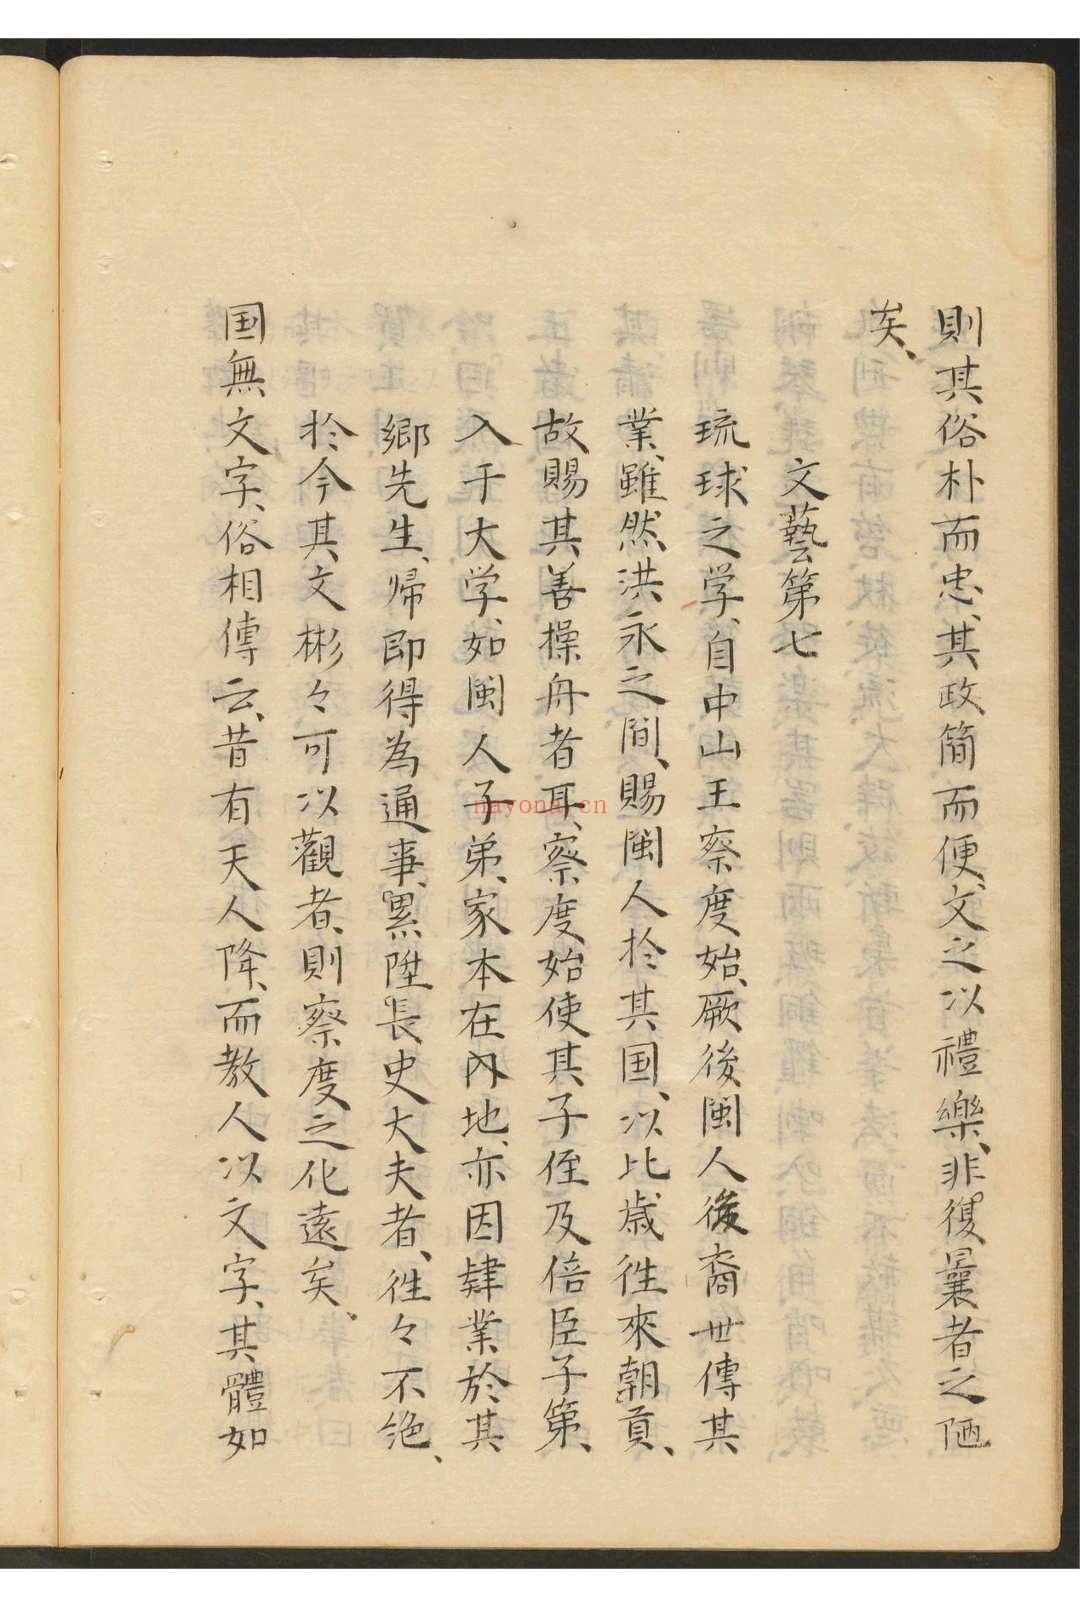 則其俗朴而忠、其政簡而便、文之以禮樂、非復曩者之陋
矣、
文藝第七
琉球之学、自中山王察度始、厥後閩人後裔世傳其
業、雖然洪永之間、賜閩人於其国、以比歳往來朝貢、
故賜其善操舟者耳、察度始使其子侄及倍臣子第、
入于大学、如閩人子弟、家本在內地、亦因肄業於其
鄉先生、帰即得為通事、累陞長史大夫者、往々不绝、
於今其文彬々可以觀者、則察度之化遠矣、
国無文字、俗相傳云、昔有天人降、而教人以文字、其體如
nayona.cn